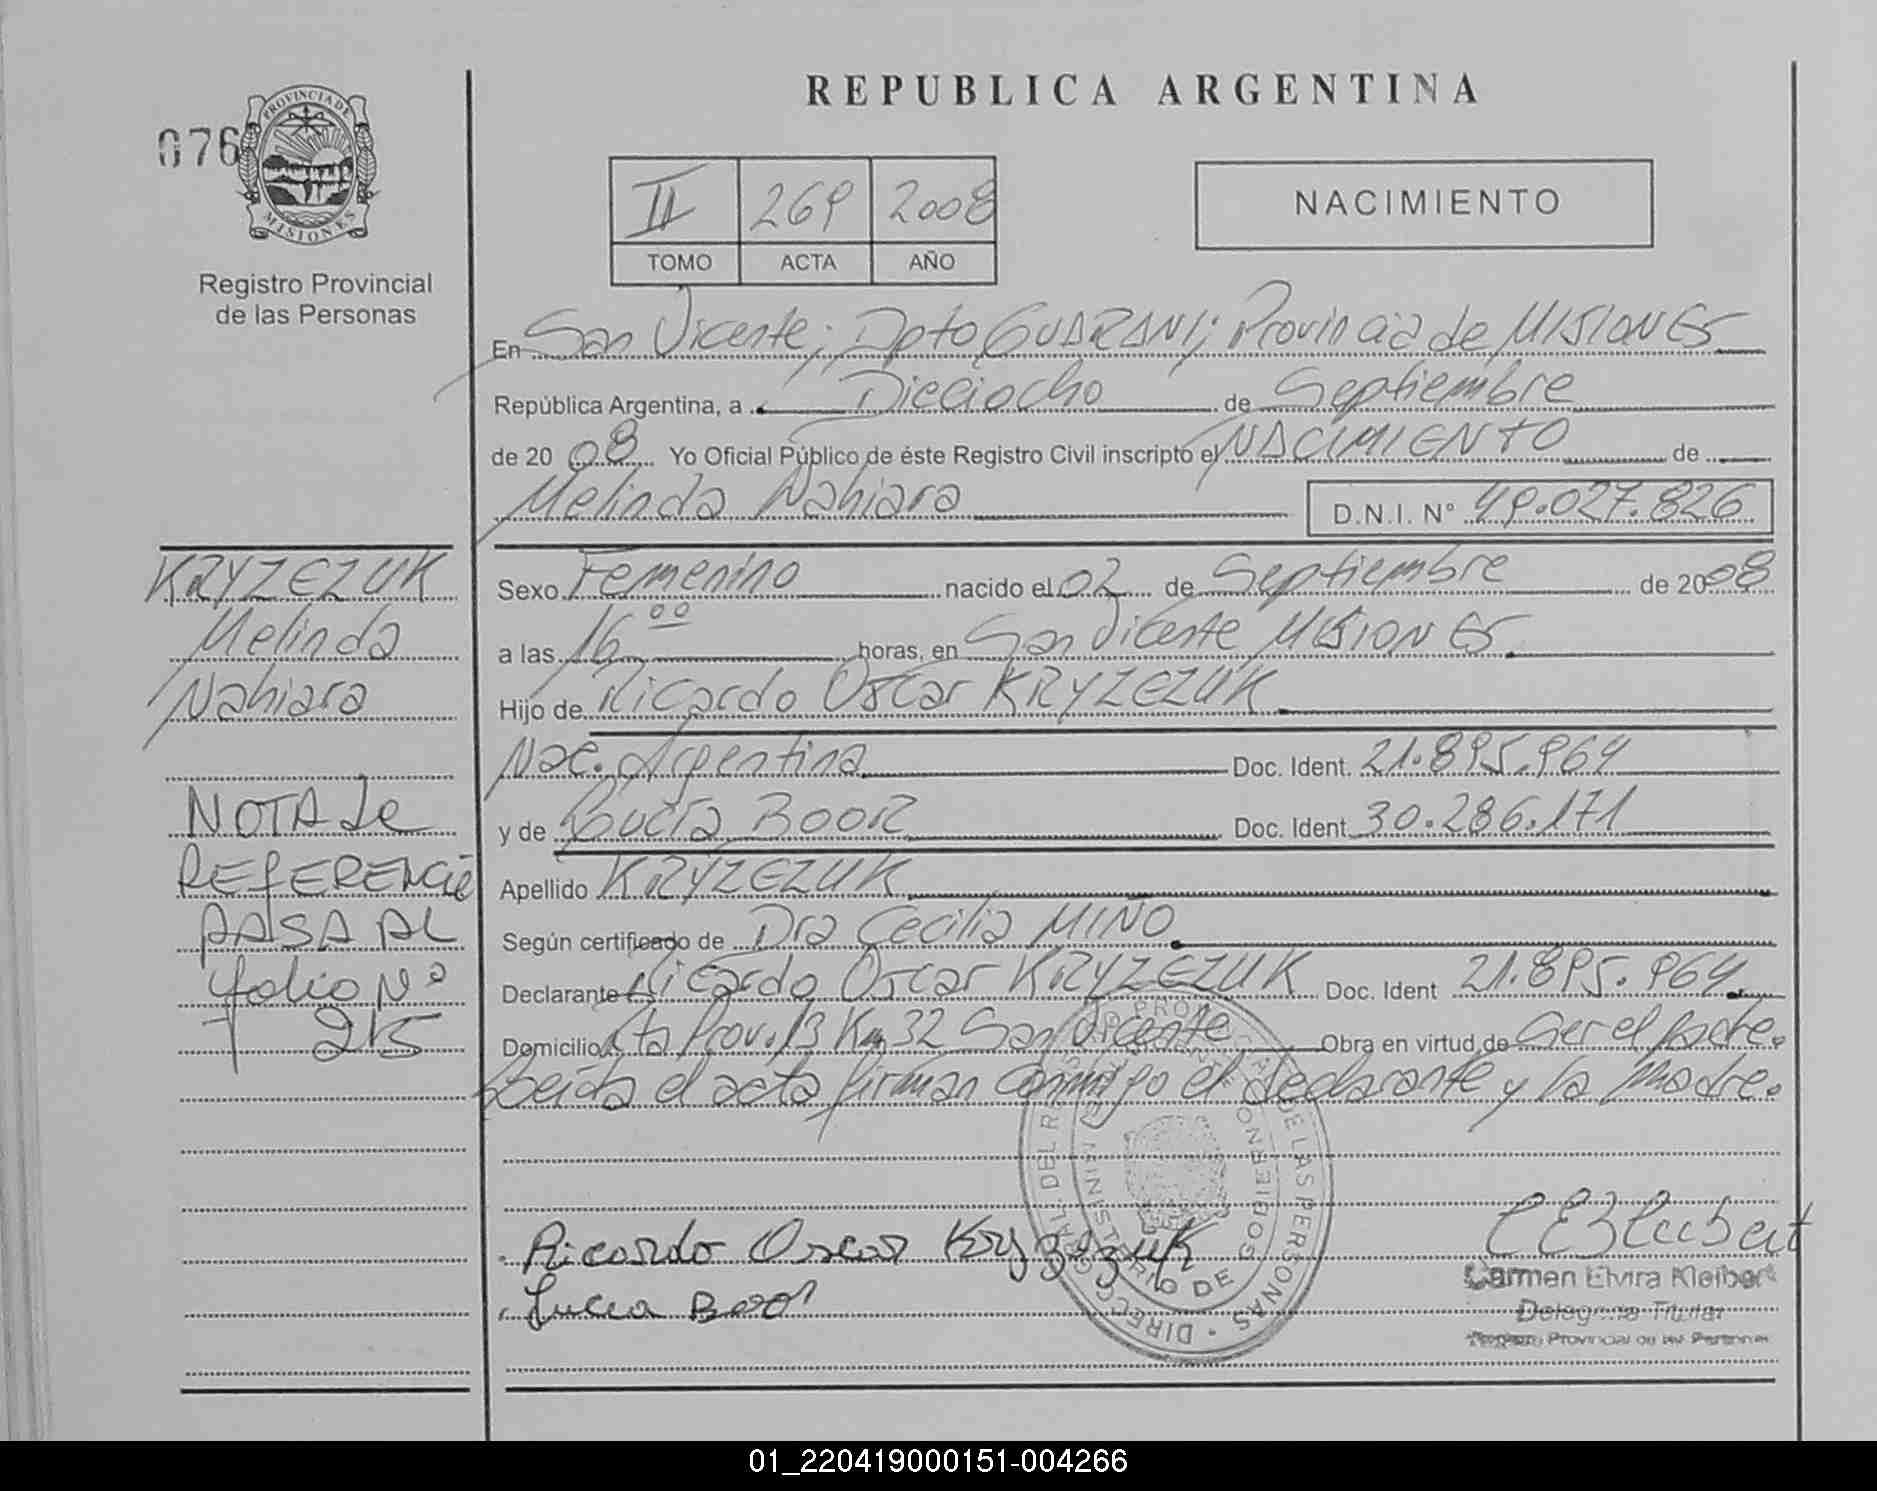 REPUBLICA ARGENTINA
076
PROVINCIA DE
MISIONES
Registro Provincial
de las Personas
II 269 2008
TOMO ACTA AÑO
NACIMIENTO
En San Vicente; Dpto GUARANI; Provincia de MISIONES
República Argentina, a Dieciocho de Septiembre
de 2008 Yo Oficial Público de éste Registro Civil inscripto el NACIMIENTO de
Melinda Nahiara D.N.I. N° 49.027.826
KRYZEZUK
Melinda
Nahiara
NOTA de
REFERENCIA
PASA AL
folio Nº
215
Sexo Femenino nacido el 02 de Septiembre de 2008
a las 16 00 horas, en San Vicente MISIONES
Hijo de Ricardo Oscar KRYZEZUK
Nac. Argentina Doc. Ident. 21.895.964
y de Lucía BOOR Doc. Ident. 30.286.171
Apellido KRYZEZUK
Según certificado de Dra Cecilia MIÑO
Declarante Ricardo Oscar KRYZEZUK Doc. Ident 21.895.964
Domicilio Rta Prov. 13 Km 32 San Vicente Obra en virtud de Ser el padre.
Leída el acta firman conmigo el declarante y la madre.
Ricardo Oscar Kryzezuk
Lucia Boor
DIRECC GRAL. DEL REG PROVINCIAL DE LAS PERSONAS
MINISTERIO DE GOBIERNO
Carmen Elvira Kleibert
Delegada Titular
Registro Provincial de las Personas
01_220419000151-004266